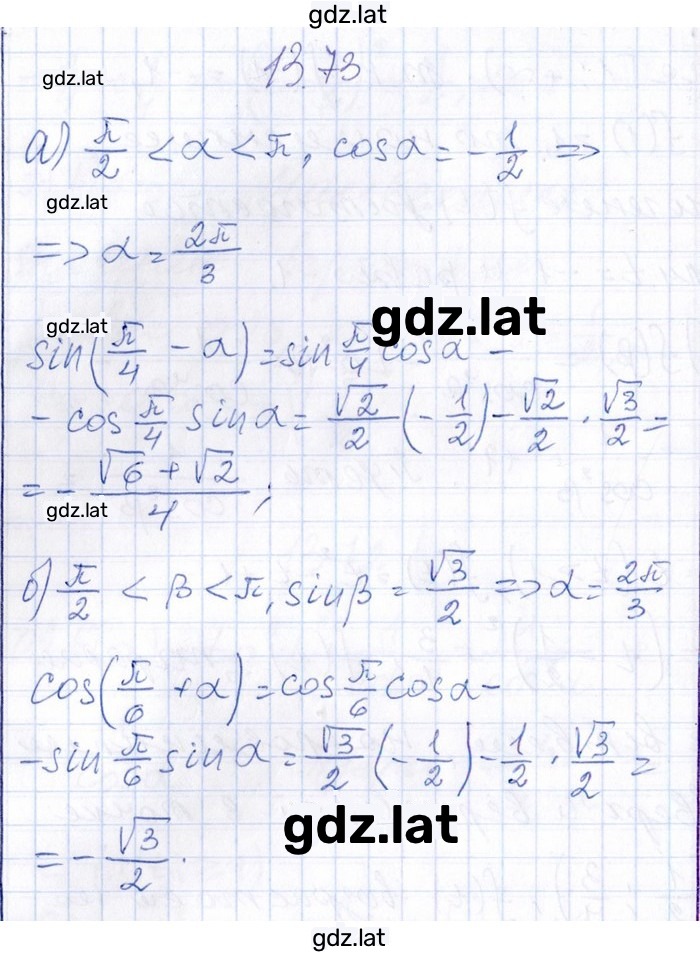 gdz.lat
13.73
gdz.lat
а) π/2 < α < π, cosα = -1/2 =>
gdz.lat
=> α = 2π/3
gdz.lat
gdz.lat
sin(π/4 - α) = sin π/4 cosα -
- cos π/4 sinα = √2/2 (-1/2) - √2/2 · √3/2 =
= - (√6 + √2)/4;
gdz.lat
б) π/2 < β < π, sinβ = √3/2 => α = 2π/3
cos(π/6 + α) = cos π/6 cosα -
- sin π/6 sinα = √3/2 (-1/2) - 1/2 · √3/2 =
gdz.lat
= - √3/2.
gdz.lat